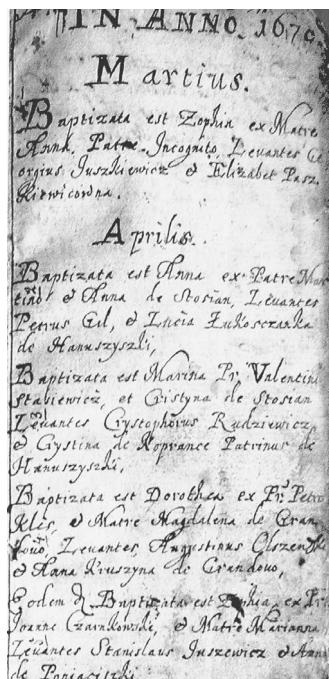 IN ANNO 1670
Martius.
Baptizata est Zophia ex Matre
Anna, Patre Incognito, Levantes Ge
orgius Juszkiewicz & Elizabet Pasz
kiewicowna.
Aprilis.
Baptizata est Anna ex Patre Mar
tino & Anna de Stosian, Levantes
Petrus Gil, & Lucia Łukosczanka
de Hanuszyszki,
Baptizata est Marina Pr. Valentini
Stabiewicz, et Cristyna de Stosian
Levantes Crystophorus Rudziewicz
& Crystina de Koprance Patrinus de
Hanuszyszki,
Baptizata est Dorothea ex Pr. Petro
Klis, & Matre Magdalena de Gran
dowo, Levantes, Augustinus Olszewski
& Anna Kruszyna de Grandowo,
Eodem Baptizata est Zophia ex Pre
Joanne Czarnkowski, & Matre Marianna
Levantes Stanislaus Juszewicz & Anna
de Poniaciszki